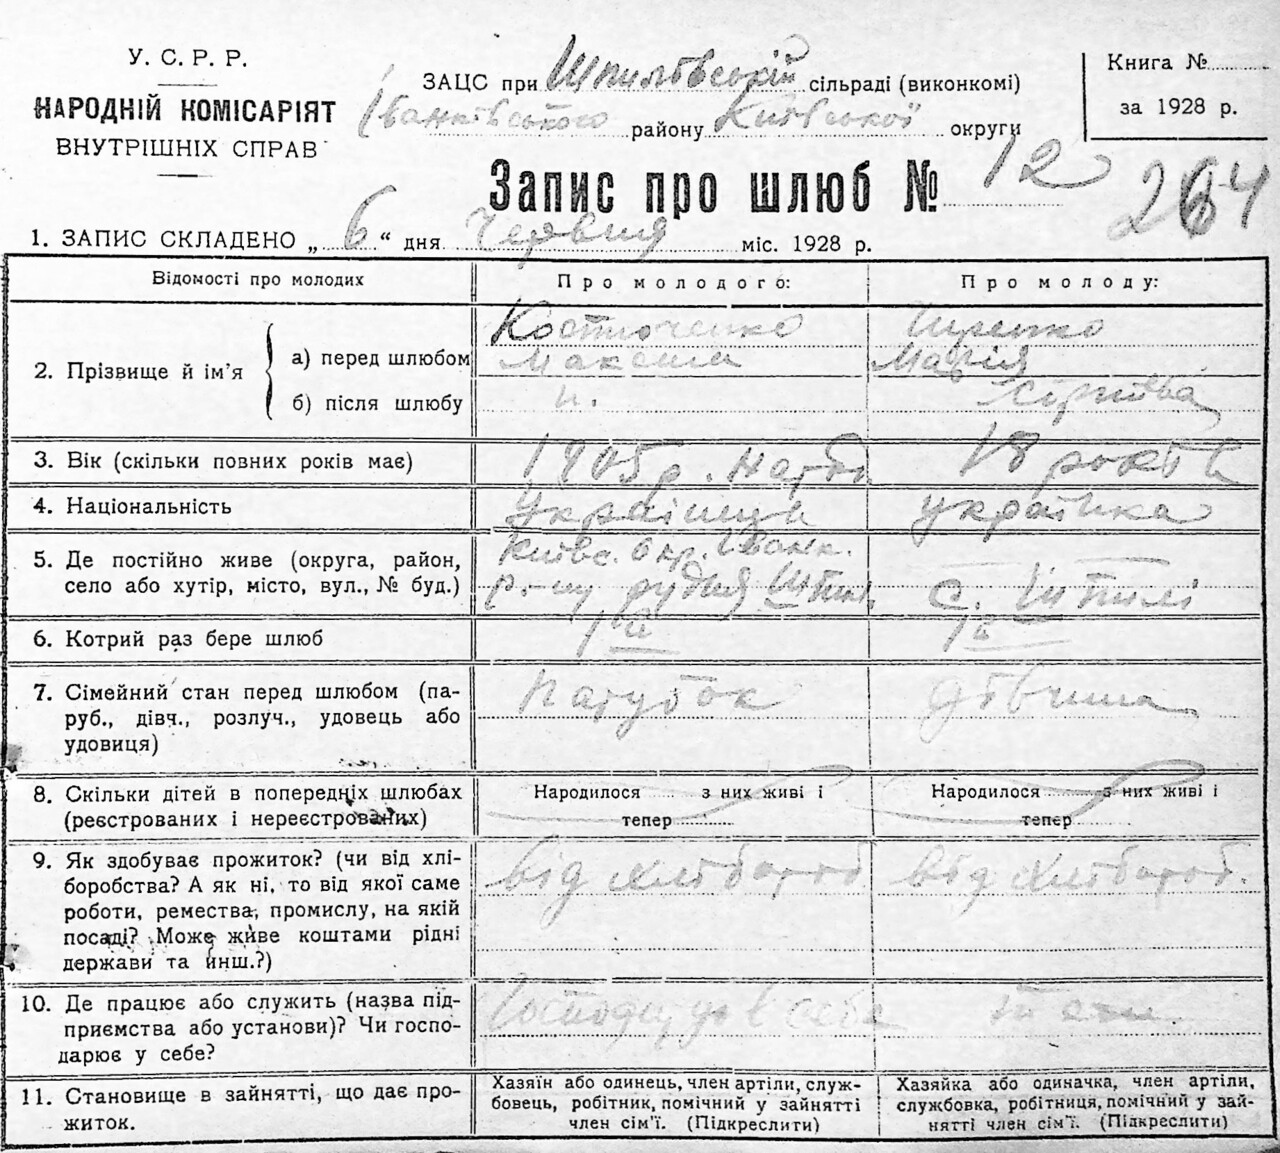 У. С. Р. Р.
НАРОДНІЙ КОМІСАРІЯТ
ВНУТРІШНІХ СПРАВ
ЗАЦС при Шпилівській сільраді (виконкомі)
Іванківського району Київської округи
Книга №
за 1928 р.
Запис про шлюб № 12
264
1. ЗАПИС СКЛАДЕНО „ 6 “ дня Червня міс. 1928 р.
Відомості про молодих
Про молодого:
Про молоду:
2. Прізвище й ім’я
а) перед шлюбом
Костюченко
Максим
Марія
б) після шлюбу
3. Вік (скільки повних років має)
1905 р.
18 років
4. Національність
Українець
українка
5. Де постійно живе (округа, район,
село або хутір, місто, вул., № буд.)
Київс. Окр. Іванк.
р-ну рудня Шпил.
с. Шпилі
6. Котрий раз бере шлюб
1й
7. Сімейний стан перед шлюбом (па-
руб., дівч., розлуч., удовець або
удовиця)
Парубок
дівчина
8. Скільки дітей в попередніх шлюбах
(реєстрованих і нереєстрованих)
Народилося з них живі і
тепер
Народилося з них живі і
тепер
9. Як здобуває прожиток? (чи від хлі-
боробства? А як ні, то від якої саме
роботи, ремества, промислу, на якій
посаді? Може живе коштами рідні
держави та инш.?)
від хлібороб.
від хлібороб.
10. Де працює або служить (назва під-
приємства або установи)? Чи госпо-
дарює у себе?
в себе
11. Становище в зайнятті, що дає про-
житок.
Хазяїн або одинець, член артіли, служ-
бовець, робітник, помічний у зайнятті
член сім’ї. (Підкреслити)
Хазяйка або одиначка, член артіли,
службовка, робітниця, помічний у зай-
нятті член сім’ї. (Підкреслити)